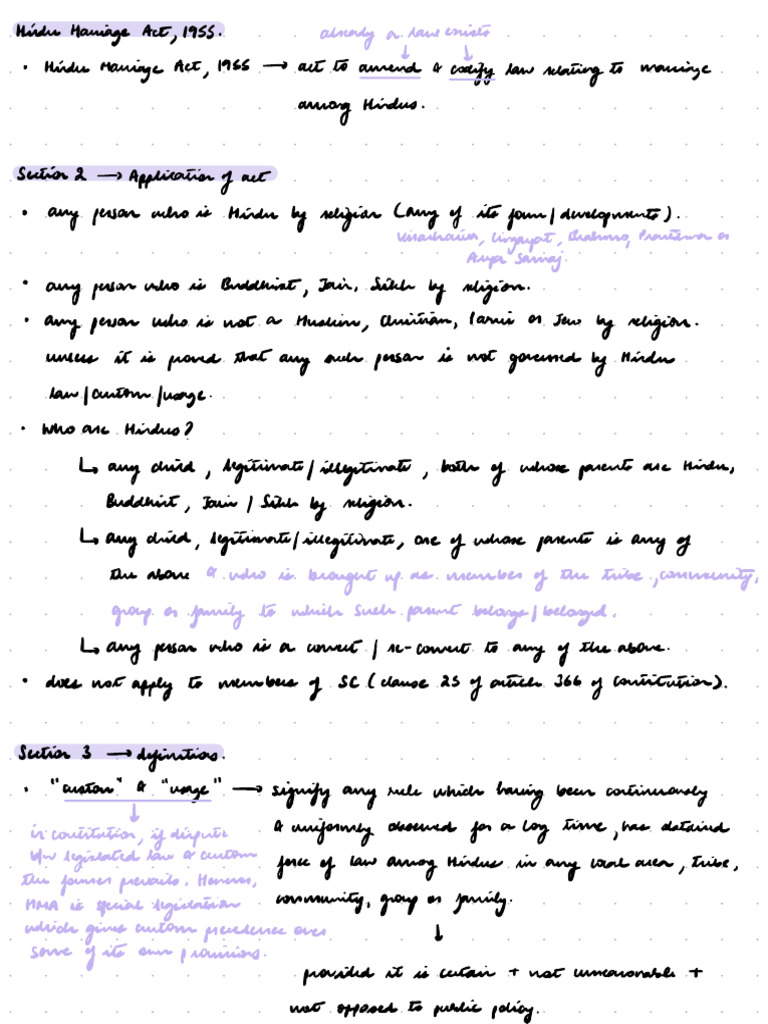 Hindu Marriage Act, 1955.
already a law exists
• Hindu Marriage Act, 1955 → act to amend & codify law relating to marriage
among Hindus.
Section 2 → Application of act
• any person who is Hindu by religion (any of its form/developments).
Virashaiva, Lingayat, Brahmo, Prarthana or
Arya Samaj.
• any person who is Buddhist, Jain, Sikh by religion.
• any person who is not a Muslim, Christian, Parsi or Jew by religion.
unless it is proved that any such person is not governed by Hindu
law/custom/usage.
• Who are Hindus?
↳ any child, legitimate/illegitimate, both of whose parents are Hindu,
Buddhist, Jain / Sikh by religion.
↳ any child, legitimate/illegitimate, one of whose parents is any of
the above & who is brought up as member of the tribe, community,
group or family to which such parent belongs/belonged.
↳ any person who is a convert / re-convert to any of the above.
• does not apply to members of SC (clause 25 of article 366 of constitution).
Section 3 → definitions.
• "custom" & "usage" → signify any rule which having been continuously
& uniformly observed for a long time, has obtained
force of law among Hindus in any local area, tribe,
community, group or family.
↓
provided it is certain + not unreasonable +
not opposed to public policy.
in constitution, if dispute
b/w legislated law & custom
the former prevails. However,
HMA is special legislation
which gives custom precedence over
some of its own provisions.